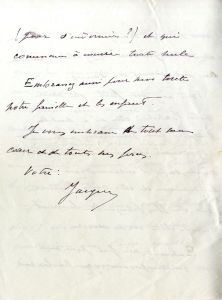 et qui
commence à toute seule
Embrassez aussi pour moi toute
notre famille et les enfants.
Je vous embrasse de tout mon
cœur et de toutes mes forces.
Votre :
Jacques